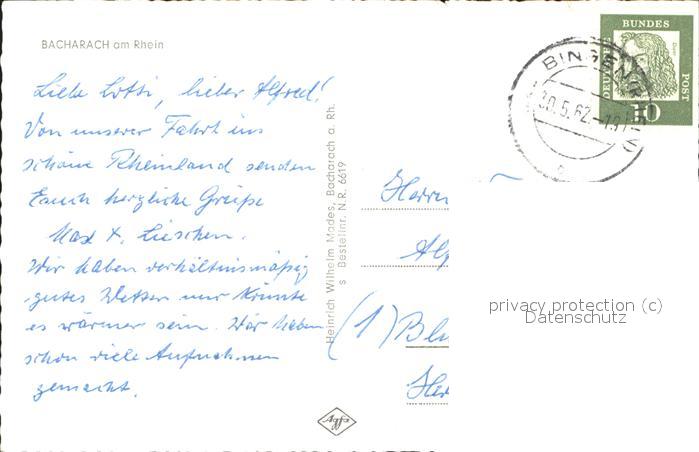 BACHARACH am Rhein
Liebe Lotti, lieber Alfred!
Von unserer Fahrt ins
schöne Rheinland senden
Euch herzliche Grüße
Max + Lieschen.
Wir haben verhältnismäßig
gutes Wetter nur könnte
es wärmer sein. Wir haben
schon viele Aufnahmen
gemacht.
Heinrich Wilhelm Mades, Bacharach a. Rh.
s Bestellnr. N.R. 6619
Agfa
DEUTSCHE BUNDES POST
10
BINGEN
30.5.62
Herrn
Alf
(1) Be
privacy protection (c)
Datenschutz